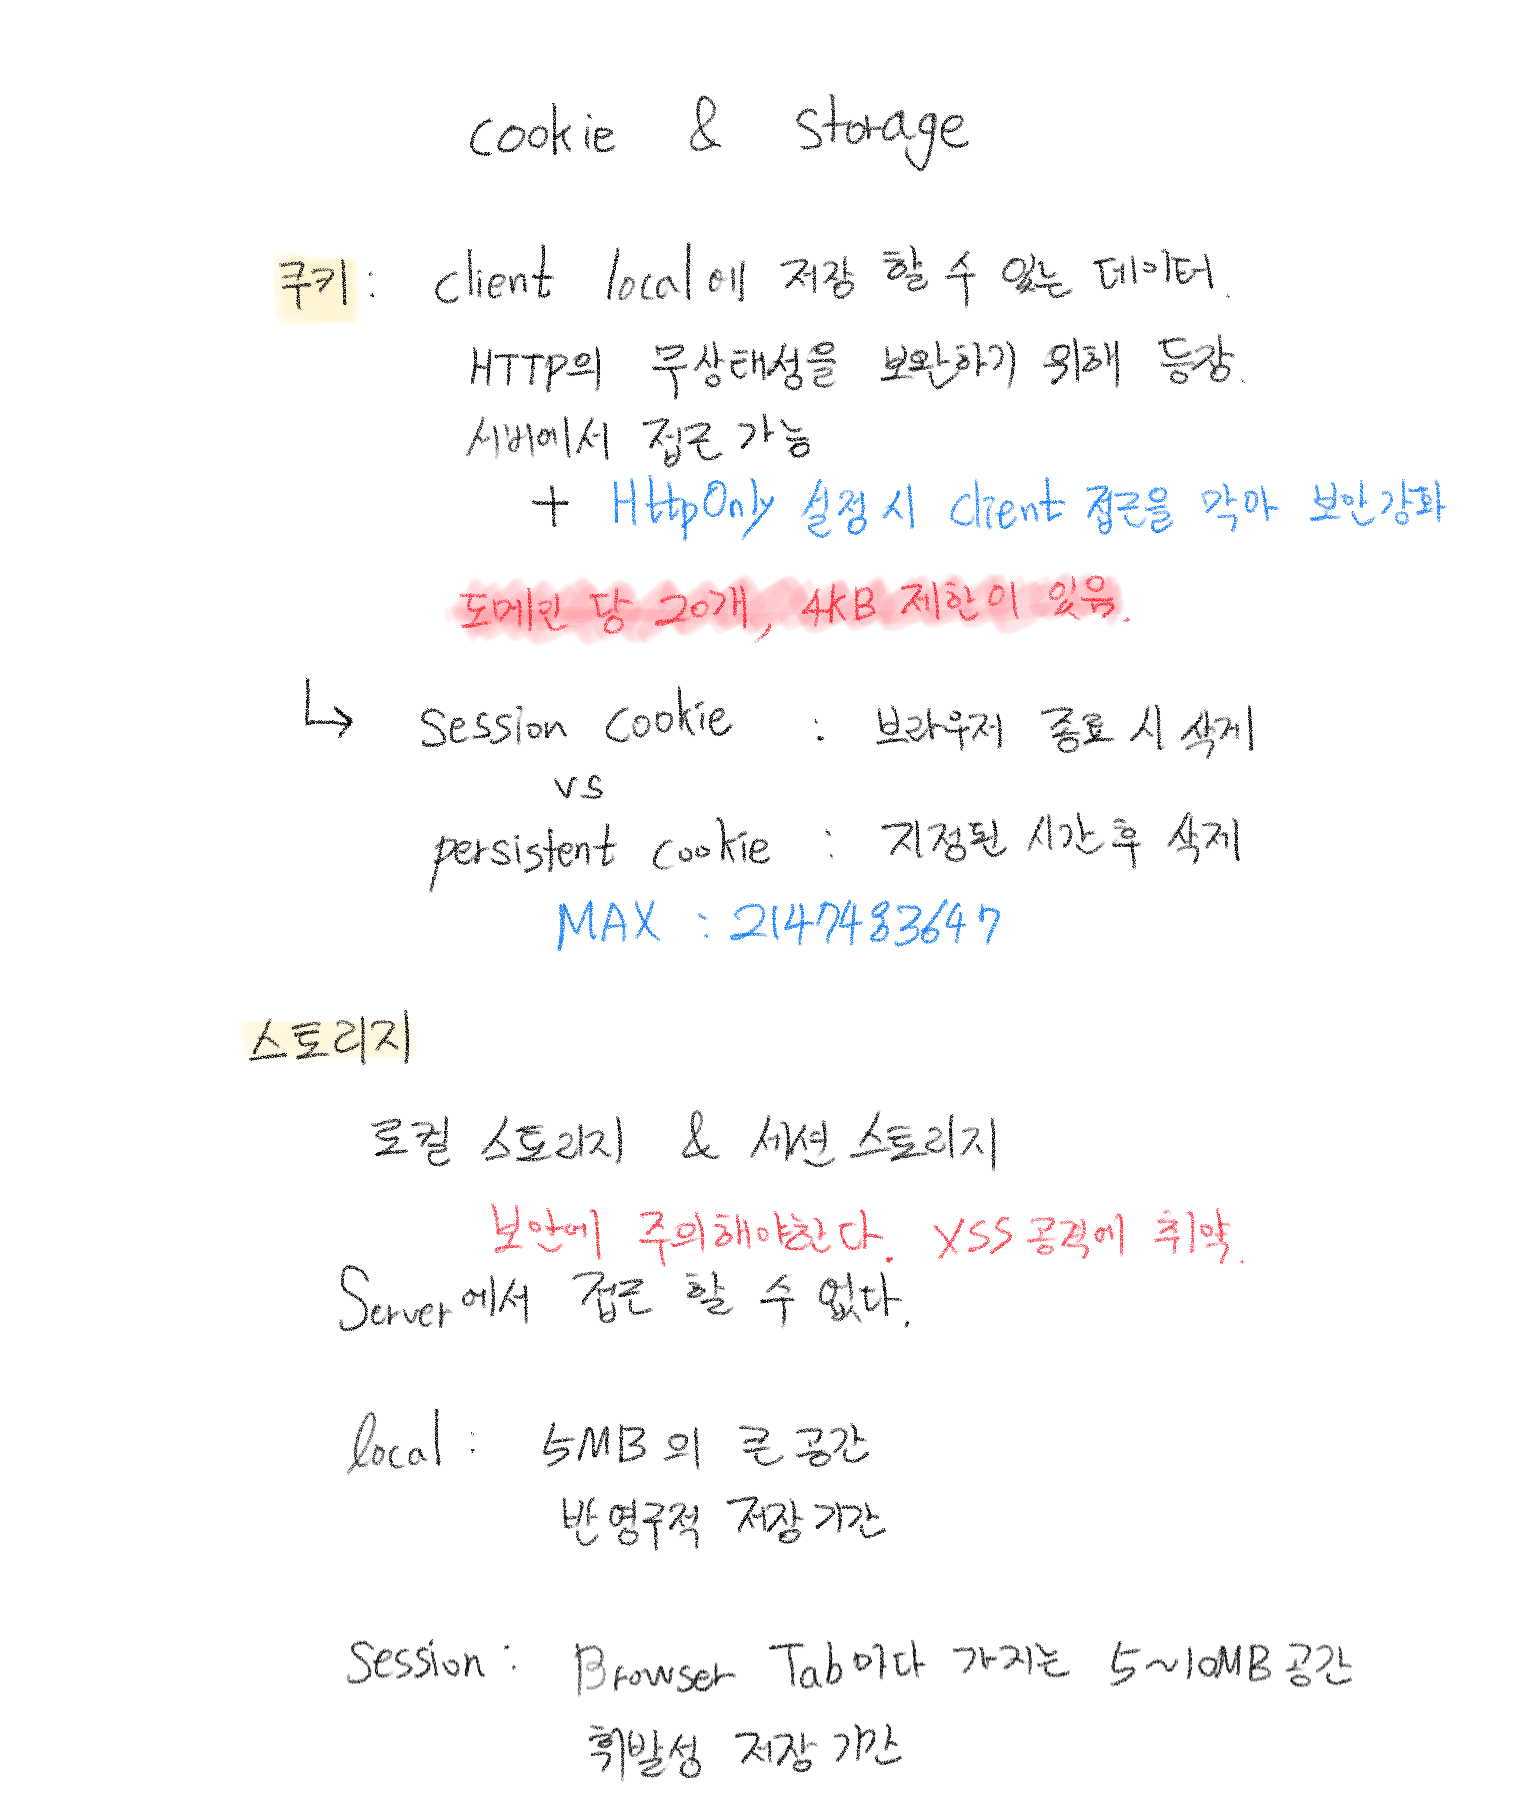 cookie & storage
쿠키 : client local에 저장 할 수 있는 데이터.
HTTP의 무상태성을 보완하기 위해 등장.
서버에서 접근 가능
+ HttpOnly 설정 시 client 접근을 막아 보안강화
도메인 당 20개, 4KB 제한이 있음.
↳ Session cookie : 브라우저 종료 시 삭제
vs
persistent cookie : 지정된 시간 후 삭제
MAX : 2147483647
스토리지
로컬 스토리지 & 세션 스토리지
보안에 주의해야한다. XSS 공격에 취약.
Server에서 접근 할 수 없다.
local : 5MB의 큰 공간
반영구적 저장 기간
Session : Browser Tab마다 가지는 5~10MB 공간
휘발성 저장 기간